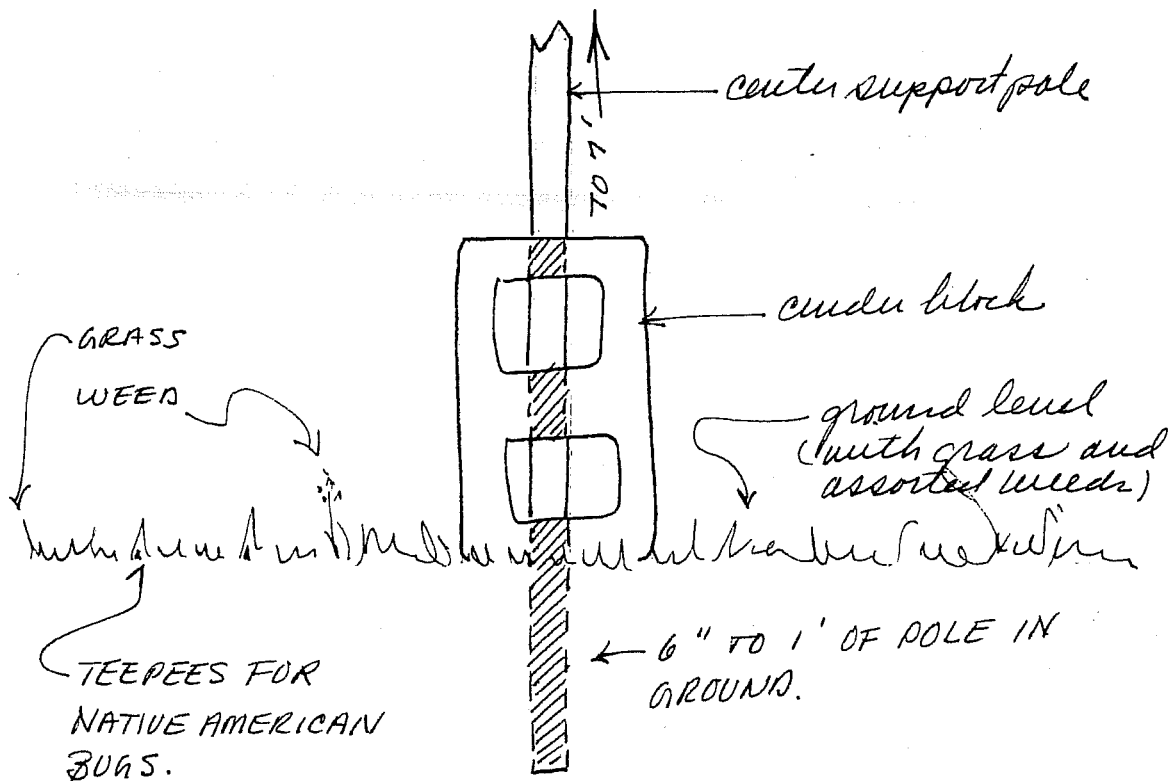 center support pole
TO 7'
cinder block
GRASS
WEED
ground level
(with grass and
assorted weeds)
6" TO 1' OF POLE IN
GROUND.
TEEPEES FOR
NATIVE AMERICAN
BUGS.